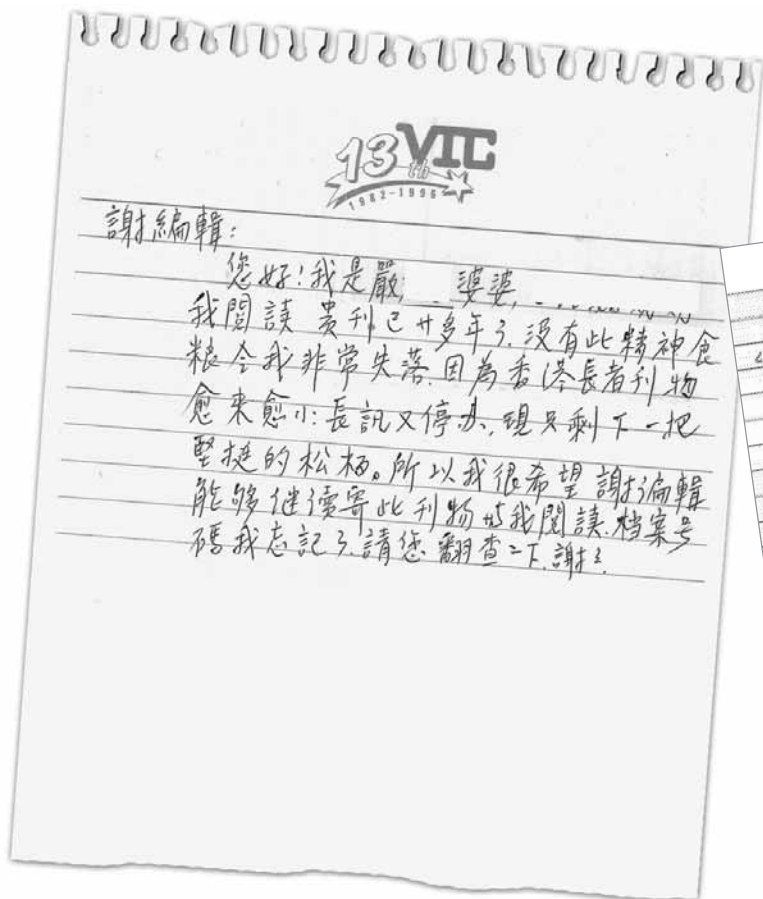 13th VTC
1982-1996
謝編輯:
您好!我是嚴 婆婆,
我閱讀 貴刊已廿多年了.沒有此精神食
粮令我非常失落.因為香港長者刊物
愈来愈小:長訊又停办,現只剩下一把
堅挺的松柏。所以我很希望謝编輯
能够继續寄此刊物与我閱讀.档案号
碼我忘記了.請您翻查一下.謝〻.